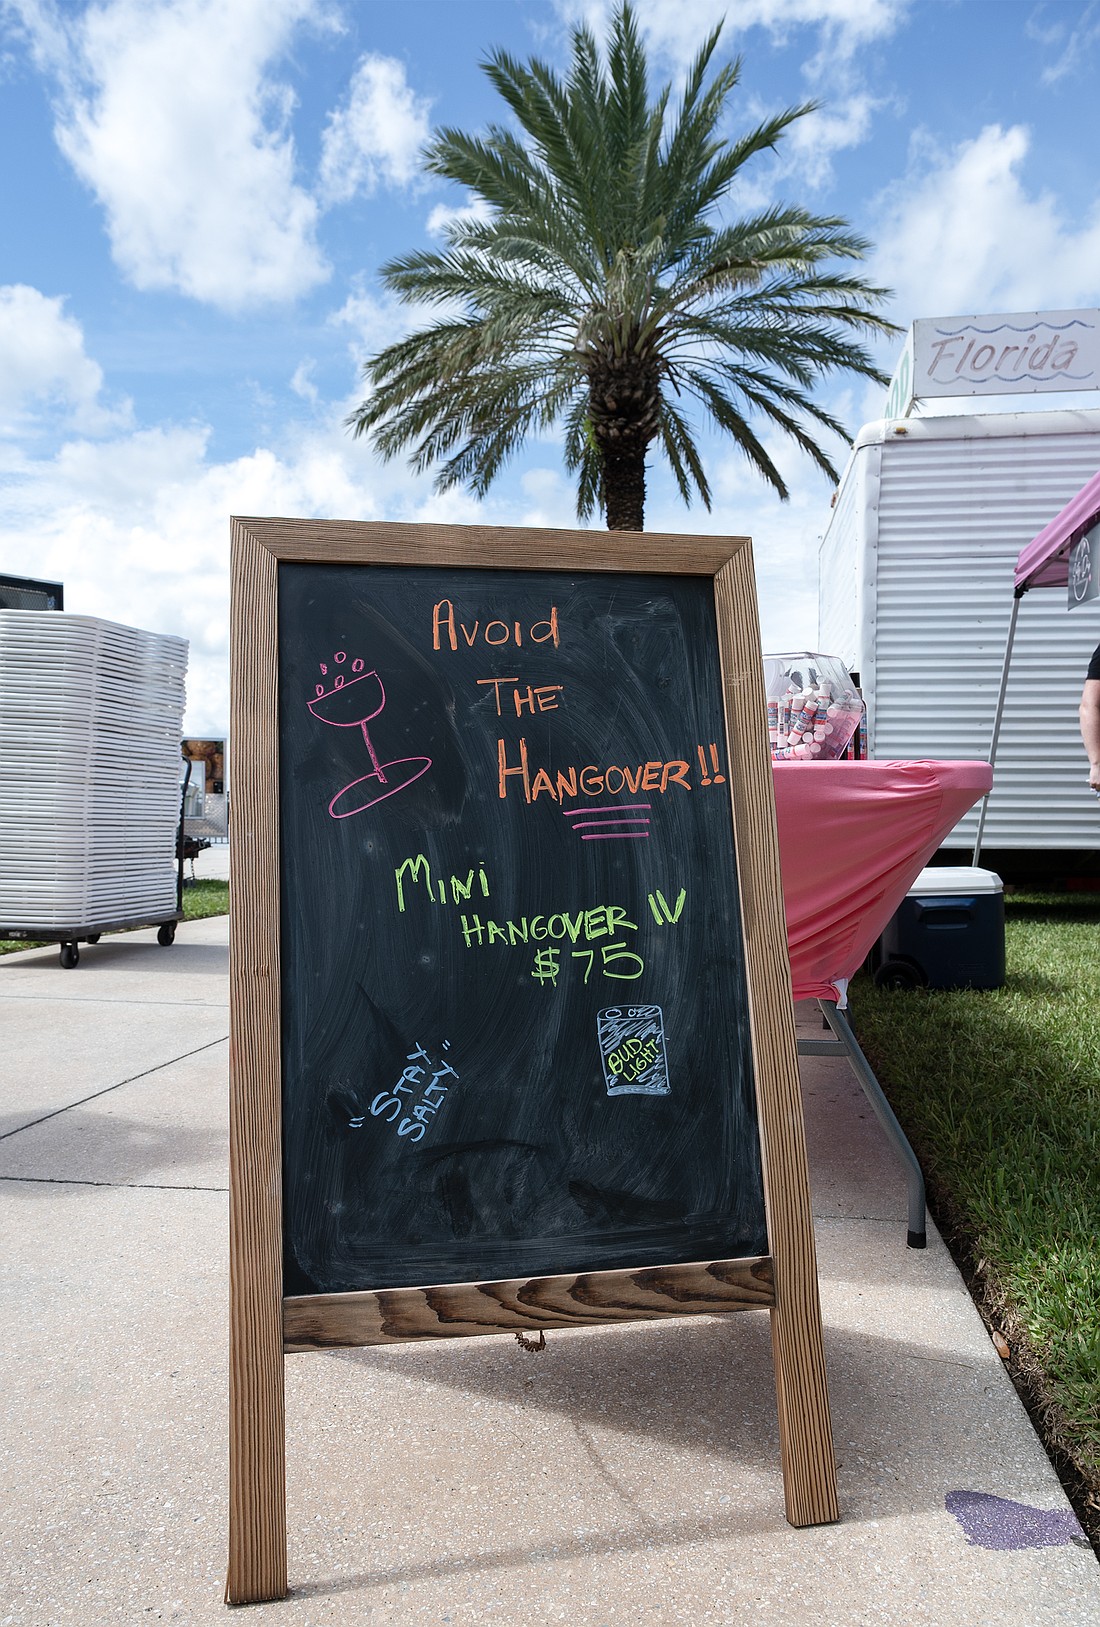 Florida
AVOID
THE
HANGOVER!!
MINI
HANGOVER IV
$75
"STAY
SALTY"
BUD
LIGHT